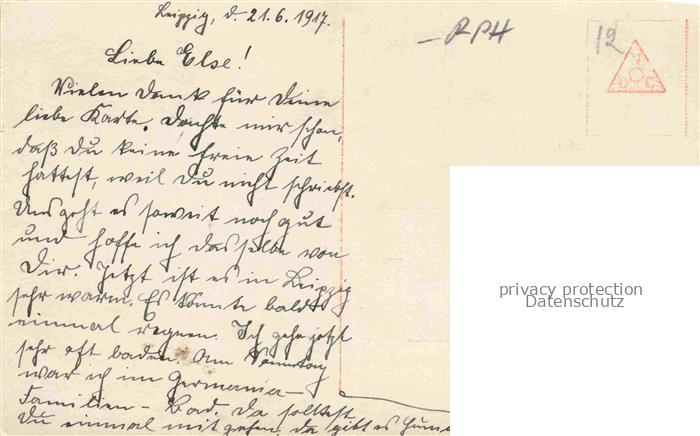 Leipzig, d. 21.6.1917.
Liebe Else!
Vielen Dank für Deine
liebe Karte. Dachte mir schon,
daß Du keine freie Zeit
hattest, weil Du nicht schriebst.
Uns geht es soweit noch gut
und hoffe ich dasselbe von
Dir. Jetzt ist es in Leipzig
sehr warm. Es könnte bald
einmal regnen. Ich gehe jetzt
sehr oft baden. Am Sonntag
war ich im Germania-
Familien-Bad. Da solltest
Du einmal mit gehen, da gibt es
RPH
12
privacy protection
Datenschutz